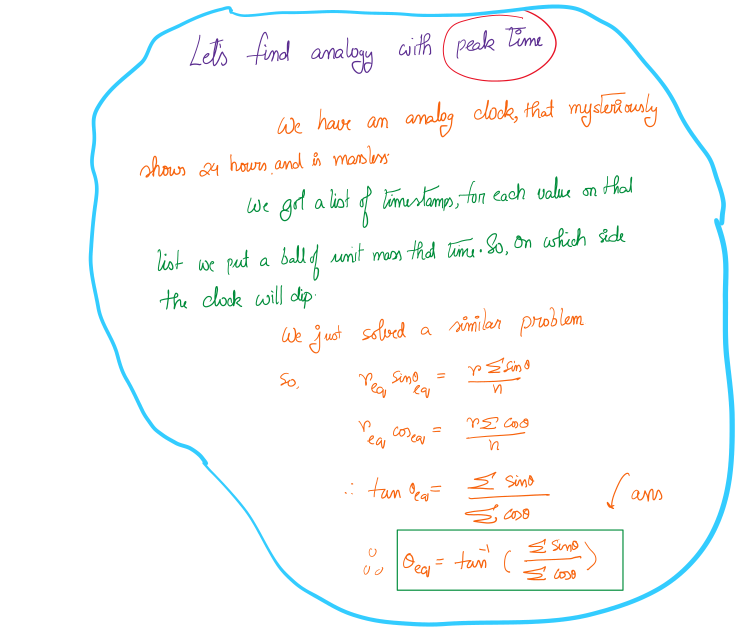 Let's find analogy with peak time
We have an analog clock, that mysteriously
shows 24 hours, and is massless.
We got a list of timestamps, for each value on that
list we put a ball of unit mass that time. So, on which side
the clock will dip.
We just solved a similar problem
So, r_eq sinθ_eq = r Σ sinθ / n
r_eq cos_eq = r Σ cosθ / n
∴ tan θ_eq = Σ sinθ / Σ cosθ ans
∴ θ_eq = tan⁻¹ ( Σ sinθ / Σ cosθ )